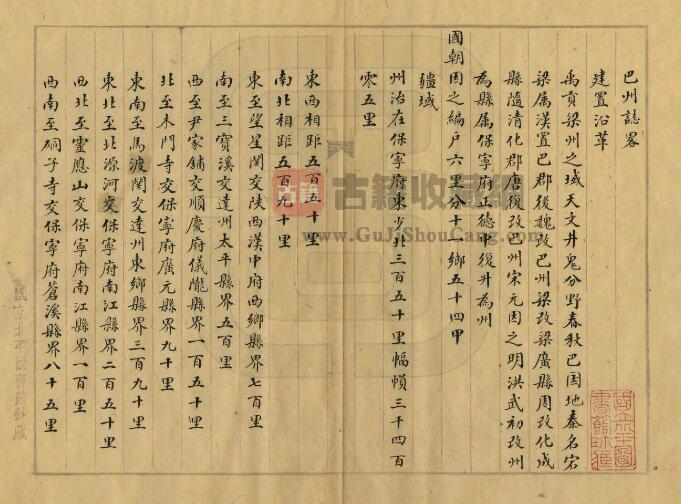 巴州誌畧
建置沿革
禹貢梁州之域天文井鬼分野春秋巴国地秦名宕
梁属漢置巴郡後魏改巴州梁改梁廣縣周改化成
縣隨清化郡唐復改巴州宋元因之明洪武初改州
為縣属保寧府正德中復升為州
國朝因之編戶六里分十一鄉五十四甲
疆域
州治在保寧府東少北三百五十里幅幀三千四百
零五里
東西相距五百五十里
南北相距五百九十里
東至望星関交陕西漢中府西鄉縣界七百里
南至三寶溪交達州太平縣界五百里
西至尹家舖交順慶府儀隴縣界一百五十里
北至木門寺交保寧府廣元縣界九十里
東南至馬渡関交達州東鄉縣界三百九十里
東北至北源河交保寧府南江縣界二百五十里
西北至靈應山交保寧府南江縣界一百里
西南至硐子寺交保寧府蒼溪縣界八十五里
古籍
古籍收藏網
www.GuJiShouCang.com